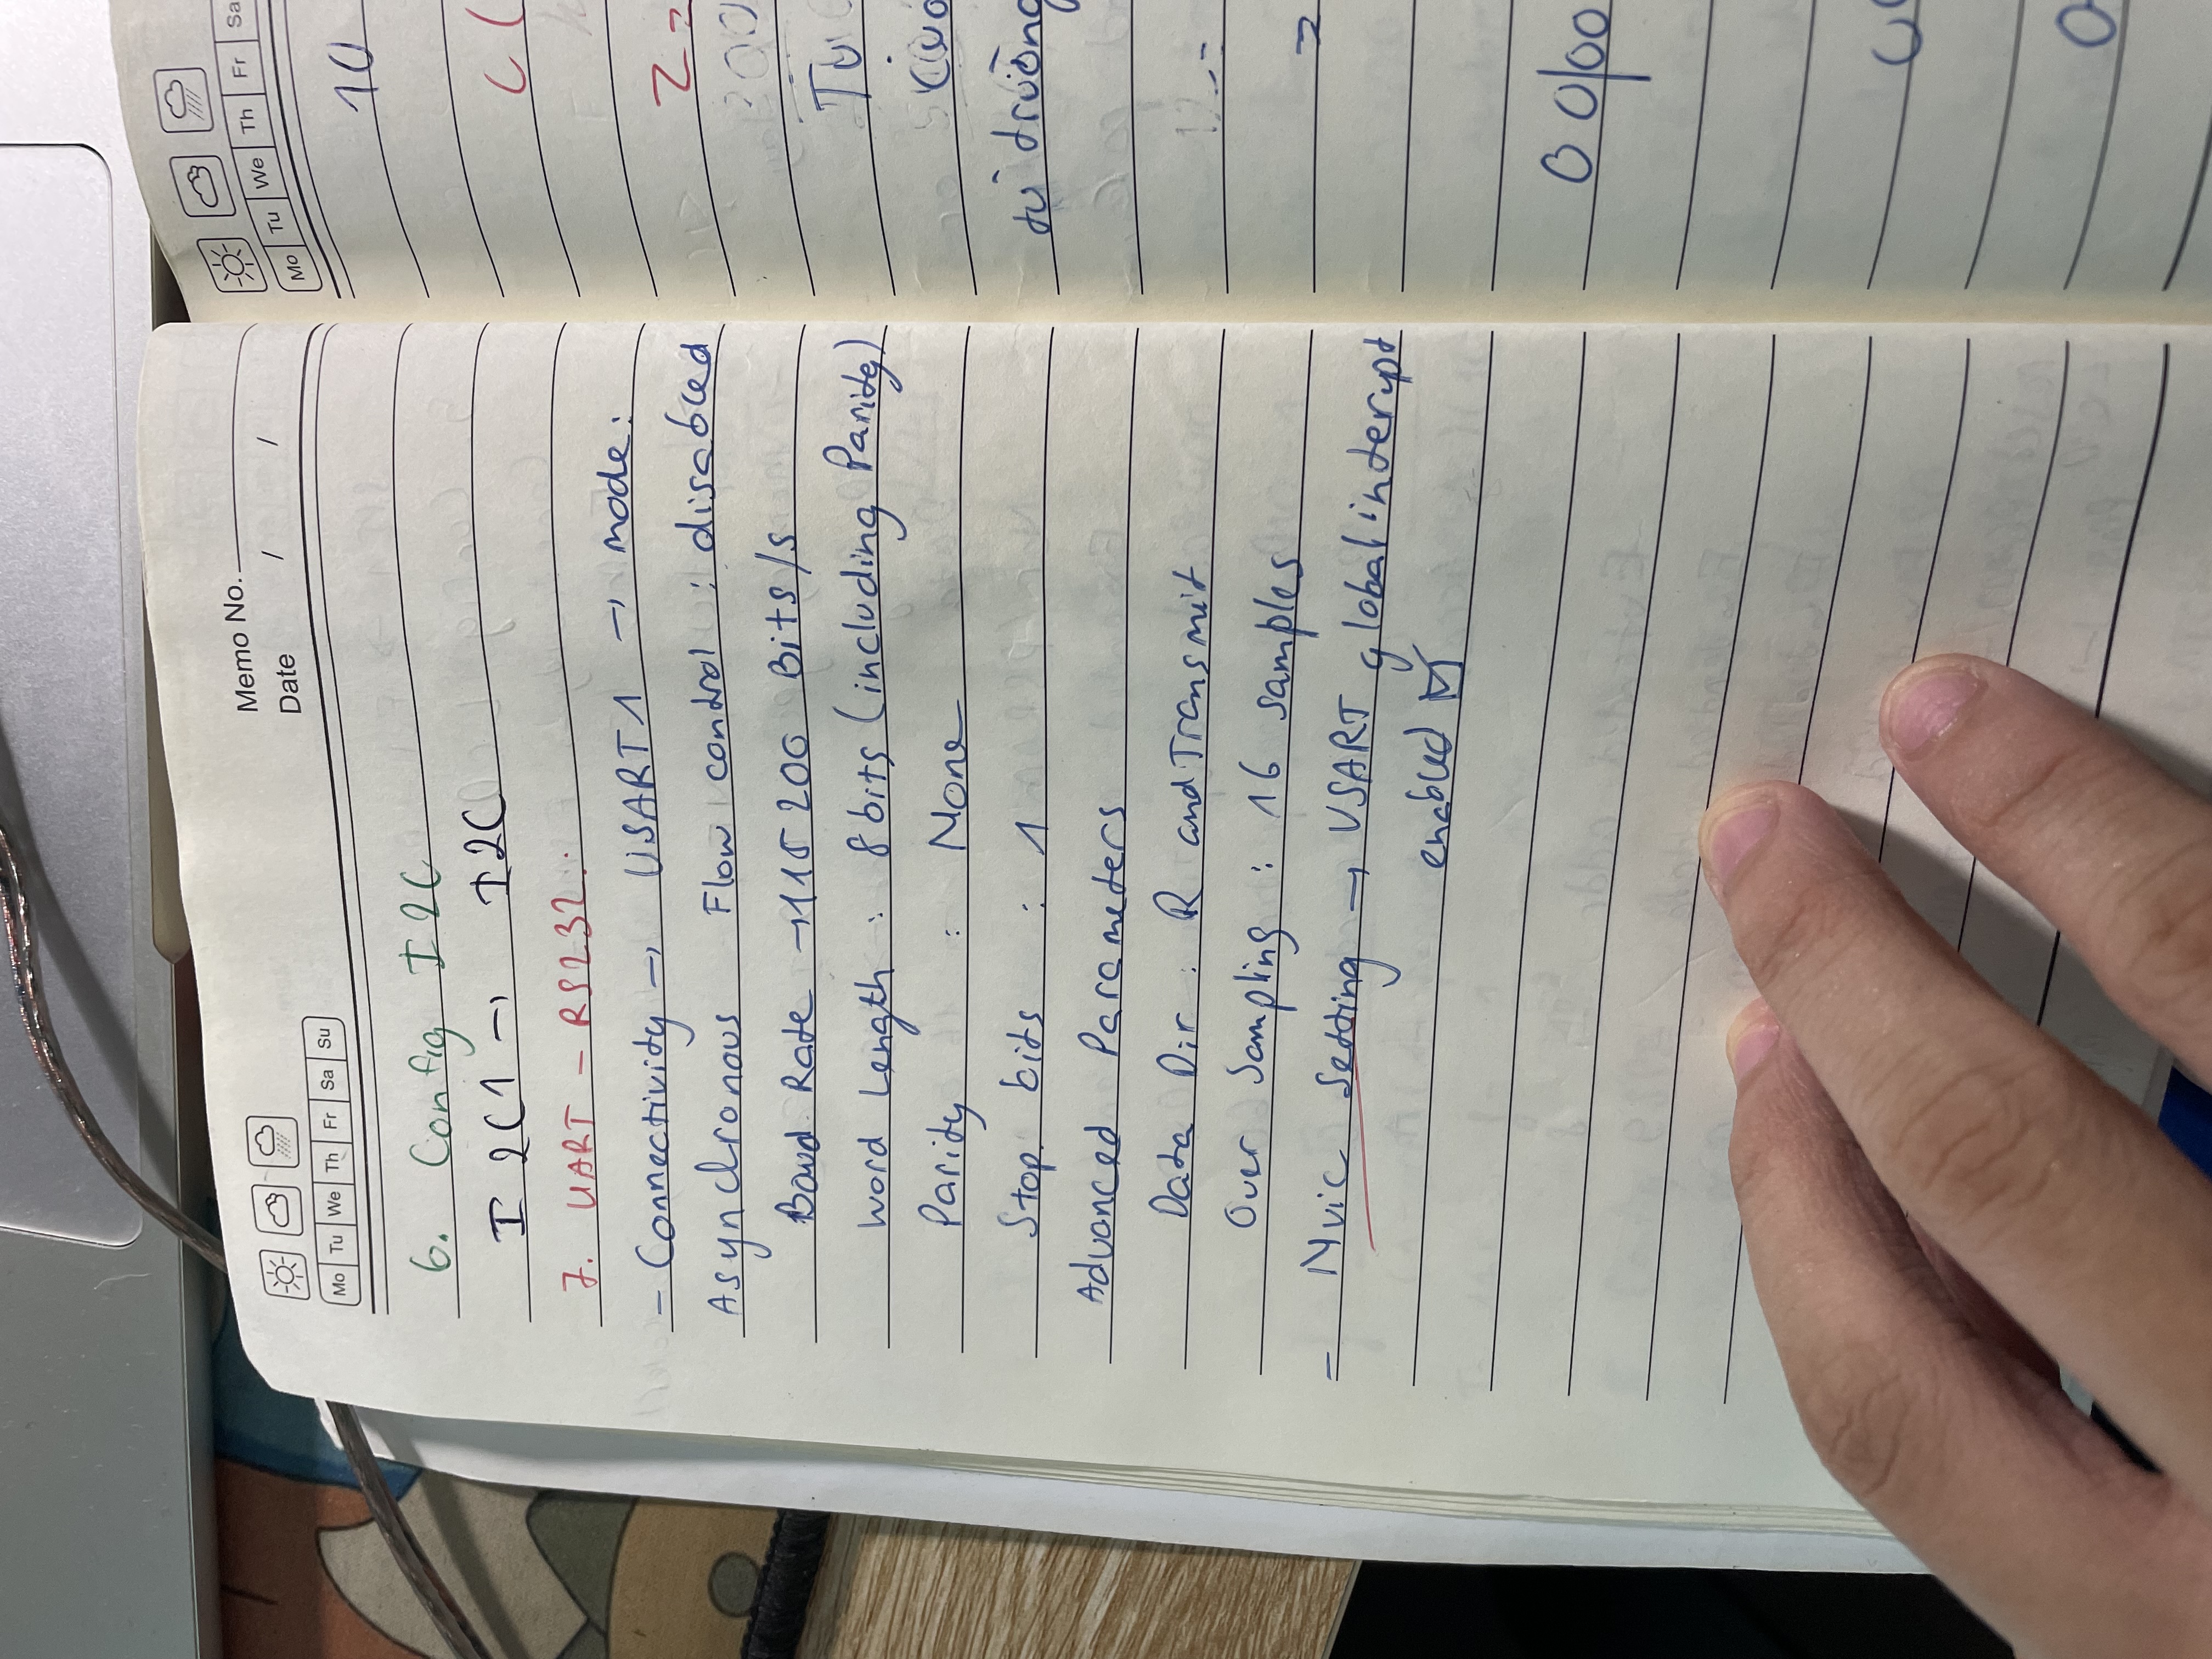 Memo No.
Date / /
Mo Tu We Th Fr Sa Su
6. Config I2C
I2C1 → I2C
7. UART - RS232.
- Connectivity → USART1 → mode:
Asynchronous Flow control : disabled
Baud Rate → 115200 Bits/s
Word Length : 8 bits (including Parity)
Parity : None
Stop bits : 1
Advanced Parameters
Data Dir : R and Transmit
Over Sampling : 16 samples
- Nvic Setting → USART global interupt
enabled ☑
Mo Tu We Th Fr Sa
10
từ trường
00|00